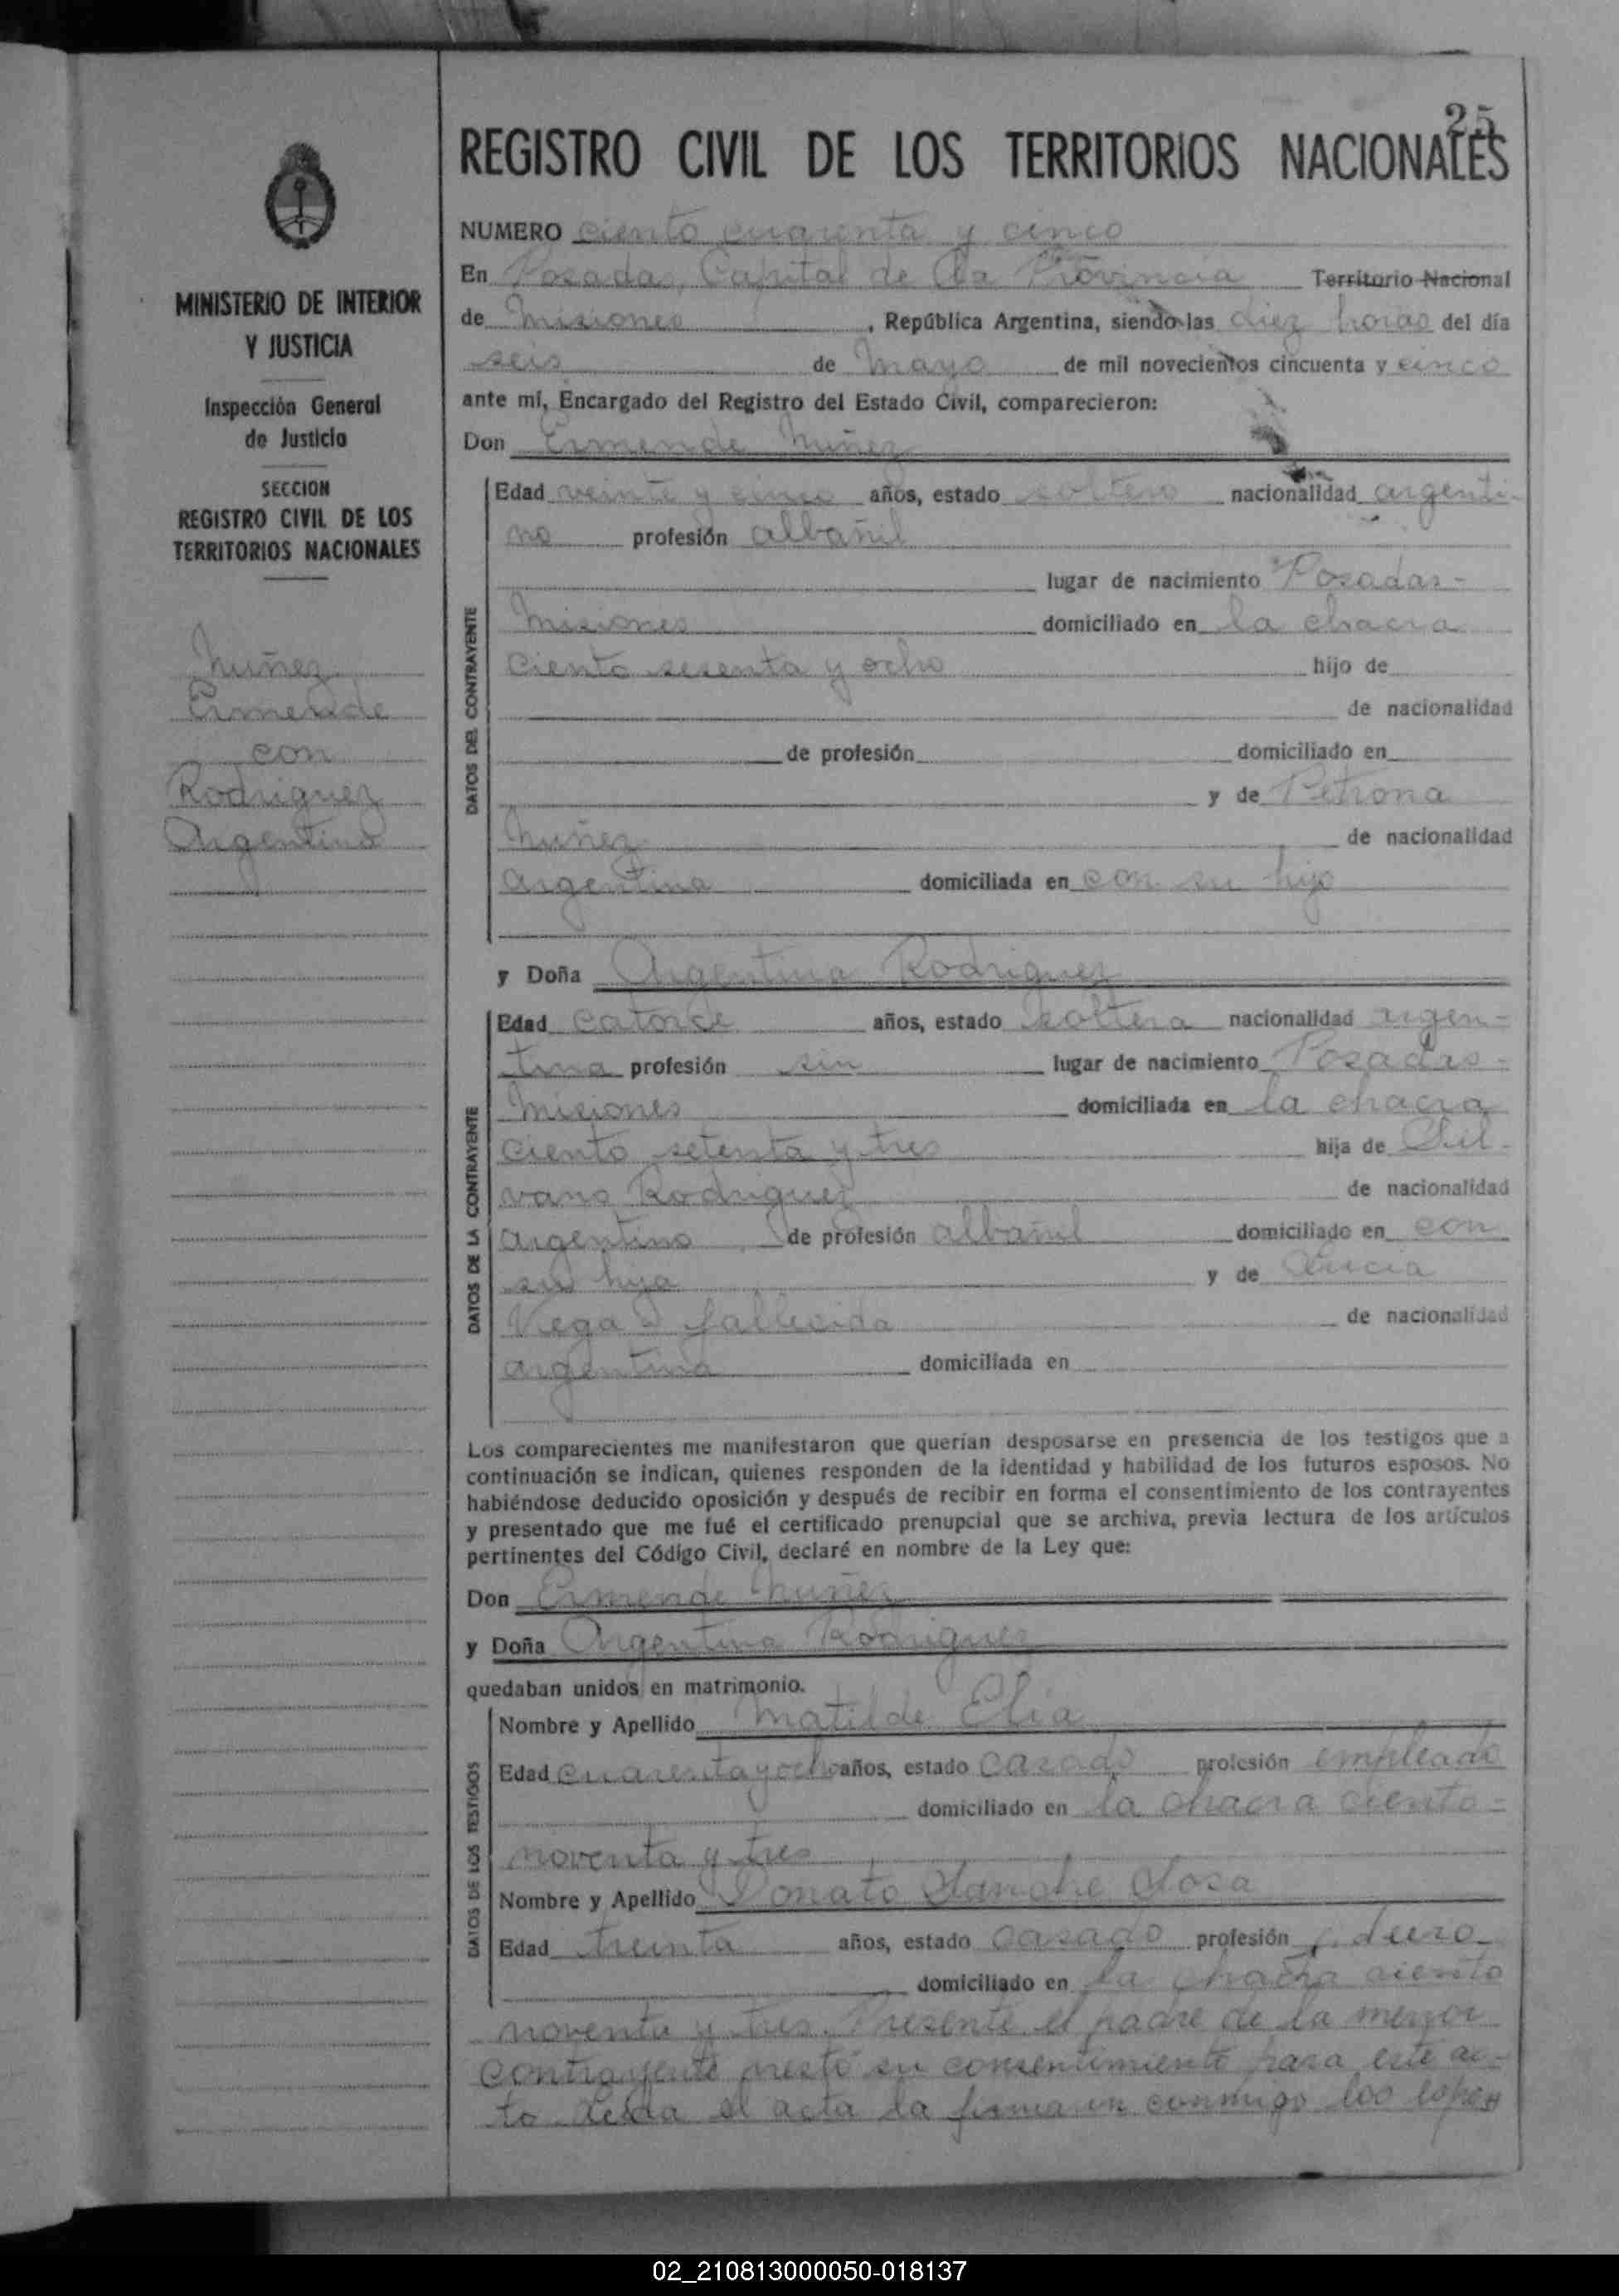 25
REGISTRO CIVIL DE LOS TERRITORIOS NACIONALES
MINISTERIO DE INTERIOR
Y JUSTICIA
Inspección General
de Justicia
SECCION
REGISTRO CIVIL DE LOS
TERRITORIOS NACIONALES
Nuñez
Ermende
con
Rodriguez
Argentina
NUMERO ciento cuarenta y cinco
En Posadas, Capital de la Provincia Territorio Nacional
de Misiones, República Argentina, siendo las diez horas del día
seis de Mayo de mil novecientos cincuenta y cinco
ante mí, Encargado del Registro del Estado Civil, comparecieron:
Don Ermende Nuñez
DATOS DEL CONTRAYENTE
Edad veinte y cinco años, estado soltero nacionalidad argenti-
no profesión albañil
lugar de nacimiento Posadas-
Misiones domiciliado en la chacra
ciento sesenta y ocho hijo de
de nacionalidad
de profesión domiciliado en
y de Petrona
Nuñez de nacionalidad
argentina domiciliada en con su hijo
y Doña Argentina Rodriguez
DATOS DE LA CONTRAYENTE
Edad catorce años, estado soltera nacionalidad argen-
tina profesión sin lugar de nacimiento Posadas-
Misiones domiciliada en la chacra
ciento setenta y tres hija de Sil-
vano Rodriguez de nacionalidad
argentino de profesión albañil domiciliado en con
su hija y de Lucia
Vega fallecida de nacionalidad
argentina domiciliada en
Los comparecientes me manifestaron que querían desposarse en presencia de los testigos que a
continuación se indican, quienes responden de la identidad y habilidad de los futuros esposos. No
habiéndose deducido oposición y después de recibir en forma el consentimiento de los contrayentes
y presentado que me fué el certificado prenupcial que se archiva, previa lectura de los artículos
pertinentes del Código Civil, declaré en nombre de la Ley que:
Don Ermende Nuñez
y Doña Argentina Rodriguez
quedaban unidos en matrimonio.
DATOS DE LOS TESTIGOS
Nombre y Apellido Matilde Elia
Edad cuarenta y ocho años, estado casado profesión empleado
domiciliado en la chacra ciento-
noventa y tres
Nombre y Apellido Donato Sanche Sosa
Edad treinta años, estado casado profesión
domiciliado en la chacra ciento
noventa y tres. Presente el padre de la menor
contrayente prestó su consentimiento para este ac-
to Leida el acta la firman conmigo los
02_210813000050-018137